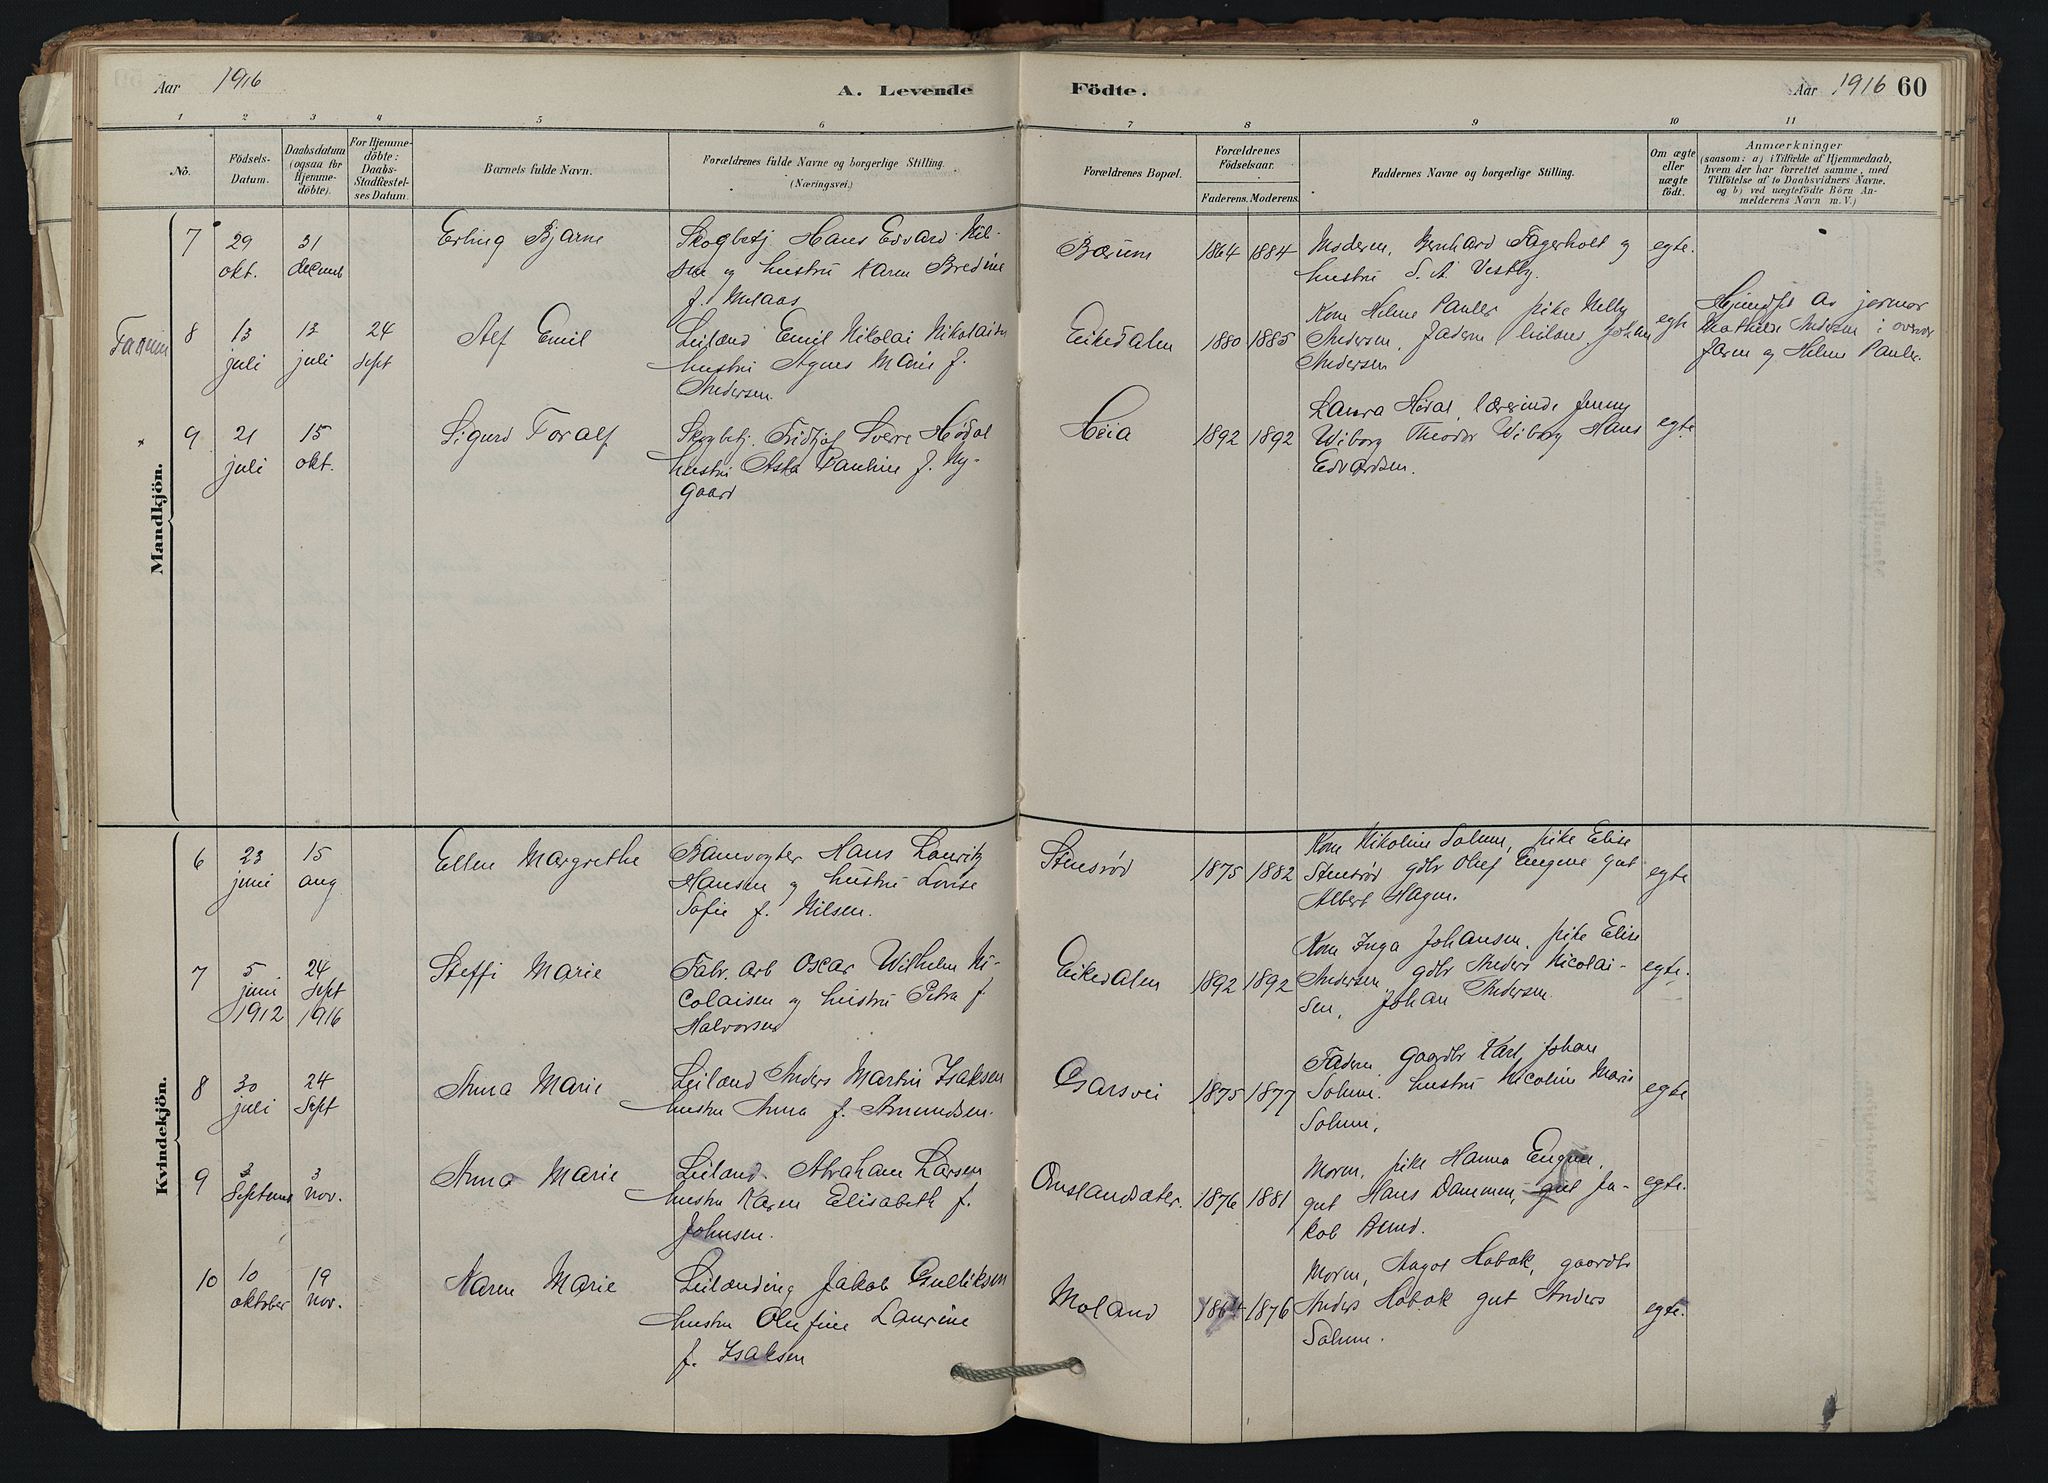 Aar 1916 A. Levende Födte. Aar 1916 60
1 2 3 4 5 6 7 8 9 10 11
No. Födsels-Datum. Daabsdatum (ogsaa for Hjemmedöbte). For Hjemmedöbte: Daabs-Stadfæstelses Datum. Barnets fulde Navn. Forældrenes fulde Navne og borgerlige Stilling. (Næringsvei.) Forældrenes Bopæl. Forældrenes Födselsaar. Faderens. Moderens. Faddernes Navne og borgerlige Stilling. Om ægte eller uægte födt. Anmærkninger (saasom: a) i Tilfælde af Hjemmedaab, hvem der har forrettet samme, med Tilföielse af to Daabsvidners Navne, og b) ved uægtefödte Börn Anmelderens Navn m. V.)
Mandkjön.
7 29 31 Erling Bjarne Skogbetj. Hans Edvard Nil- Bærum 1864 1884 Moderen, Bernhard Fagerholt og egte.
okt. decemb sen og hustru Karen Bredine hustru S. A. Vestby.
f. Melaas
8 13 13 24 Alf Emil Leilænd Emil Nikolai Nikolaisen Eikedalen 1880 1885 Kone Helene Pauler pike Nelly egte Hjemdpt av jormor
juli juli Sept hustru Agnes Marie f. Andersen, Faderen leilænd. Johan Mathilde Andersen i overvær
Andersen Andersen Faren og Helene Pauler.
9 21 15 Sigurd Toralf Skogbetj. Fridtjof Sverre Hødal Heia 1892 1892 Laura Hødal, lærerinde Jenny egte
juli okt. hustru Asta Pauline f. Ny- Wiborg Theodor Wiborg Hans
gaard Edvardsen.
Kvindekjön.
6 23 15 Ellen Margrethe Banevogter Hans Lauritz Stensrød 1875 1882 Kone Nikoline Solum, pike Elise egte
juni aug Hansen og hustru Lovise Stensrød gdbr Olaf Eugene gut
Sofie f. Nilsen. Albert Hagen.
7 5 24 Steffi Marie Fabr. arb Oscar Wilhelm Ni- Eikedalen 1892 1892 Kone Inga Johansen, pike Elise egte.
juni Sept colaisen og hustru Petra f Andersen gdbr Anders Nicolai-
1912 1916 Halvorsen sen, Johan Andersen.
8 30 24 Anna Marie Leilænd Anders Martin Isaksen Garsvei 1875 1877 Faderen, Gaardbr Karl Johan egte
juli Sept hustru Anna f. Amundsen. Solum. hustru Nicoline Marie
Solum.
9 3 3 Anna Marie Leilænd. Abraham Larsen Omslandsæter. 1876 1881 Moren, pike Hanna Eugene, egte.
Septemb nov. hustru Karen Elisabeth f. gut Hans Dammen, gut Ja-
Johnsen. kob Bund.
10 10 19 Karen Marie Leilænding Jakob Gulliksen Moland 1876 Moren, Aagot Habak, gaardbr egte.
oktober nov. hustru Olefine Laurine Anders Habak gut Anders
f. Isaksen Solum.